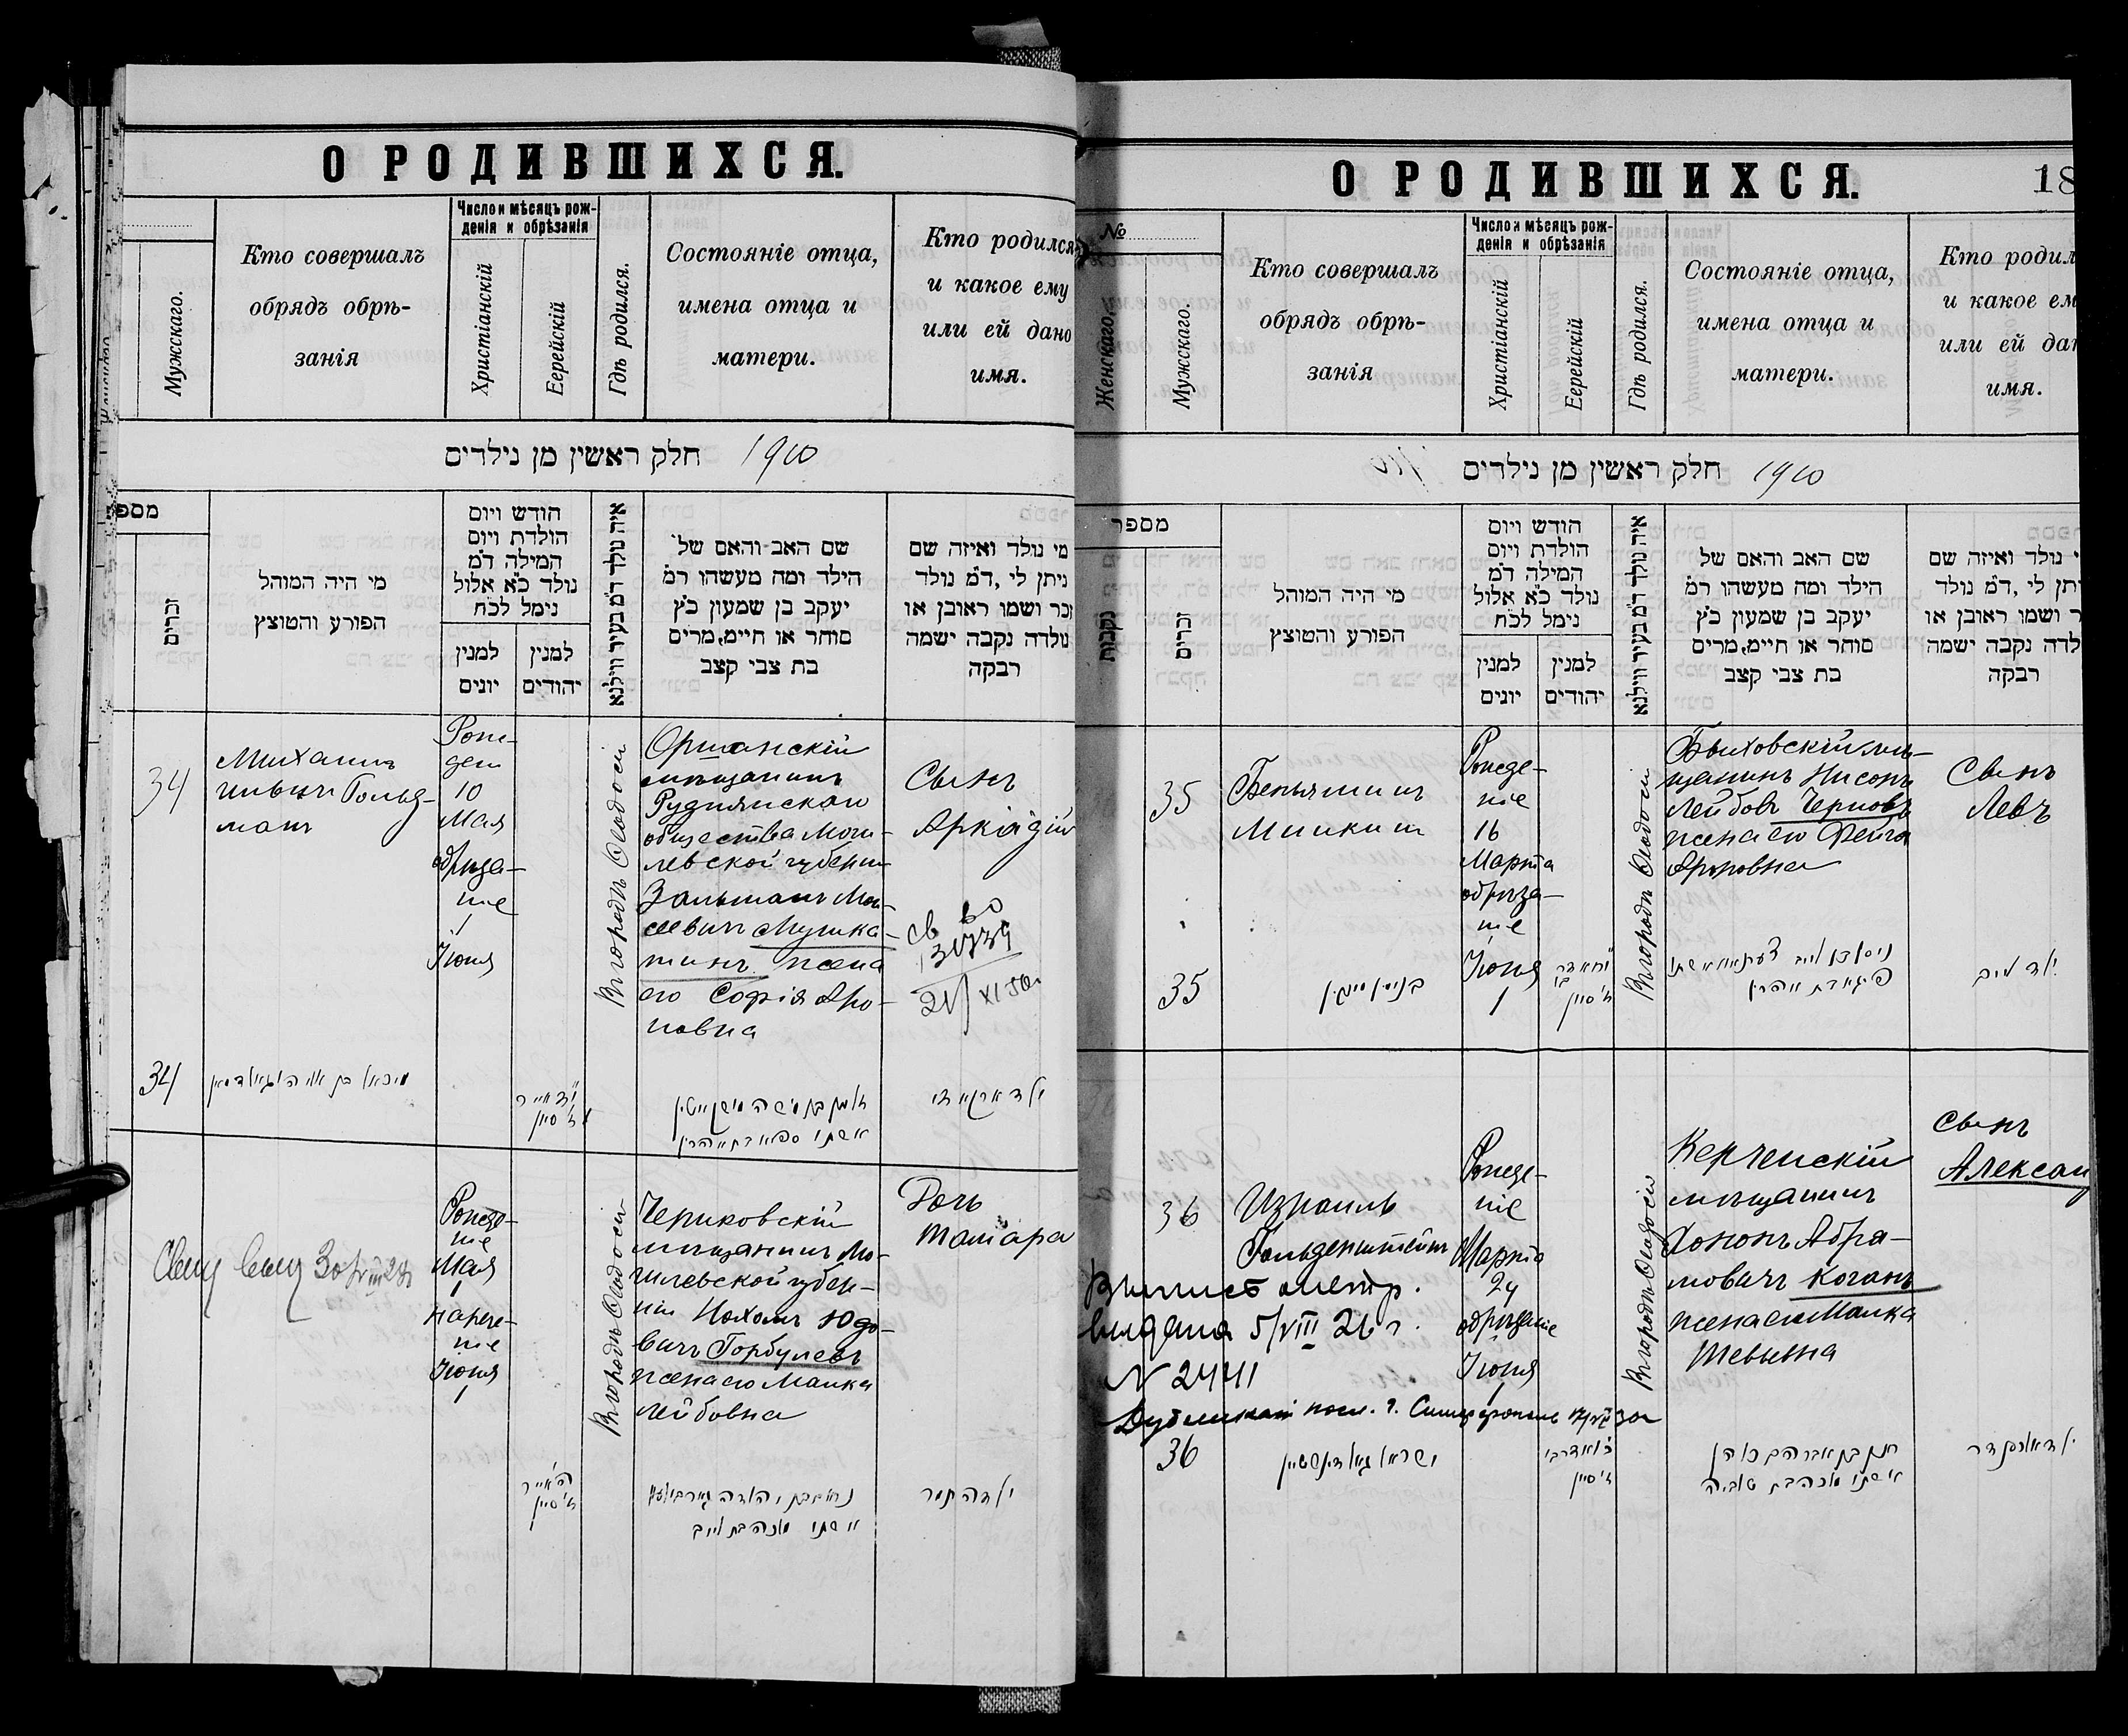 О РОДИВШИХСЯ.
Мужскаго.
Кто совершалъ
обрядъ обрѣ-
занія
Число и мѣсяцъ рож-
денія и обрѣзанія
Христіанскій
Еврейскій
Гдѣ родился.
Состояніе отца,
имена отца и
матери.
Кто родился
и какое ему
или ей дано
имя.
חלק ראשין מן נילדים 1910
מספר
זכרים
מי היה המוהל
הפורע והטוצץ
הודש ויום
הולדת ויום
המילה ד״מ
נולד כ״א אלול
נימל לכ״ח
למנין
יונים
למנין
יהודים
איה נולד ד״מ בעיר ווילנא
שם האב והאם של
הילד ומה מעשהו ר״מ
יעקב בן שמעון כ״ץ
סוחר או חיים, מרים
בת צבי קצב
מי נולד ואיזה שם
ניתן לי, ד״מ נולד
זכר ושמו ראובן או
נולדה נקבה ישמה
רבקה
34
Михаилъ
Гольд-
манъ
Рож-
ден
10
Мая
обрѣза-
ніе
1
Іюня
Въ городѣ Ѳеодосіи
Оршанскій
мѣщанинъ
Руднянскаго
общества Моги-
левской губерніи
Залманъ Мои-
сеевичъ Мушка-
тинъ жена
его Софія Аро-
новна
Сынъ
Аркадій
34
ילד ארקאדי
Рожде-
ніе
Мая
1
нарече-
ніе
Іюня
1
Въ городѣ Ѳеодосіи
Чериковскій
мѣщанинъ Мо-
гилевской губер-
ніи Нохомъ Юдо-
вичъ Горбулевъ
жена его Малка
Лейбовна
Дочь
Тамара
ה׳ אייר
ז׳ סיון
אשתו מלכה בת לייב
ילדה תמר
О РОДИВШИХСЯ.
18
№
Женскаго.
Мужскаго.
Кто совершалъ
обрядъ обрѣ-
занія
Число и мѣсяцъ рож-
денія и обрѣзанія
Христіанскій
Еврейскій
Гдѣ родился.
Состояніе отца,
имена отца и
матери.
Кто родил
и какое ем
или ей дан
имя.
חלק ראשין מן נילדים 1910
מספר
נקבות
זכרים
מי היה המוהל
הפורע והטוצץ
הודש ויום
הולדת ויום
המילה ד״מ
נולד כ״א אלול
נימל לכ״ח
למנין
יונים
למנין
יהודים
איה נולד ד״מ בעיר ווילנא
שם האב והאם של
הילד ומה מעשהו ר״מ
יעקב בן שמעון כ״ץ
סוחר או חיים, מרים
בת צבי קצב
י נולד ואיזה שם
יתן לי, ד״מ נולד
ר ושמו ראובן או
לדה נקבה ישמה
רבקה
35
Беньяминъ
Минкинъ
Рожде-
ніе
16
Марта
обрѣза-
ніе
Іюня
1
Въ городѣ Ѳеодосіи
Быховскій мѣ-
щанинъ Нисонъ
Лейбовъ Черновъ
жена его Фейга
Ароновна
Сынъ
Левъ
35
בנימין מינקין
ילד לייב
36
Израиль
Гольденштейнъ
Рожде-
ніе
Марта
24
обрѣзаніе
Іюня
1
Въ городѣ Ѳеодосіи
Керченскій
мѣщанинъ
Хононъ Абра-
мовичъ Коганъ
жена его Малка
Тевьевна
Сынъ
Алексан
Выпись о метр.
выдана 5/VIII 26 г.
N 2441
36
ישראל גאלדינשטיין
חנן בן אברהם כהן
אשתו מלכה בת טוביה
ילד אלכסנדר